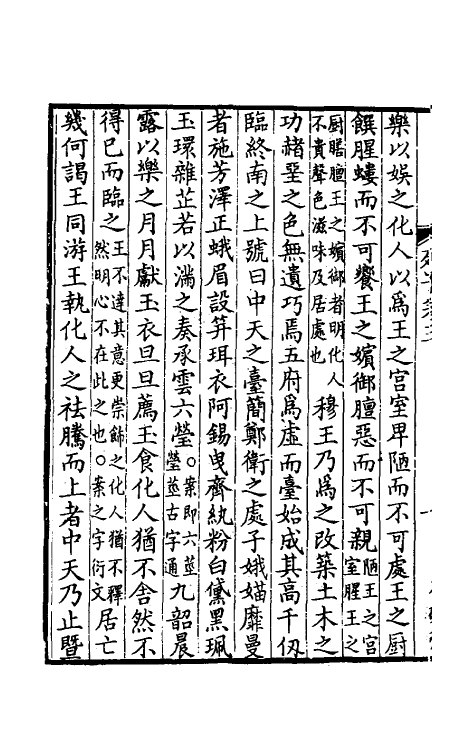 樂以娱之化人以爲王之宫室卑陋而不可處王之厨
饌腥螻而不可饗王之嬪御膻惡而不可親陋王之宫室腥王之
厨膳膻王之嬪御者明化人不貴聲色滋味及居處也穆王乃爲之改築土木之
功赭堊之色無遺巧焉五府爲虚而臺始成其高千仭
臨終南之上號曰中天之臺簡鄭衛之處子娥媌靡曼
者施芳澤正蛾眉設筓珥衣阿錫曳齊紈粉白黛黑珮
玉環雜芷若以滿之奏承雲六瑩○案即六莖瑩莖古字通九韶晨
露以樂之月月獻玉衣旦旦薦玉食化人猶不舍然不
得已而臨之王不達其意更崇飾之化人猶不釋然明心不在此之也○案之字衍文居亡
幾何謁王同游王執化人之祛騰而上者中天乃止暨